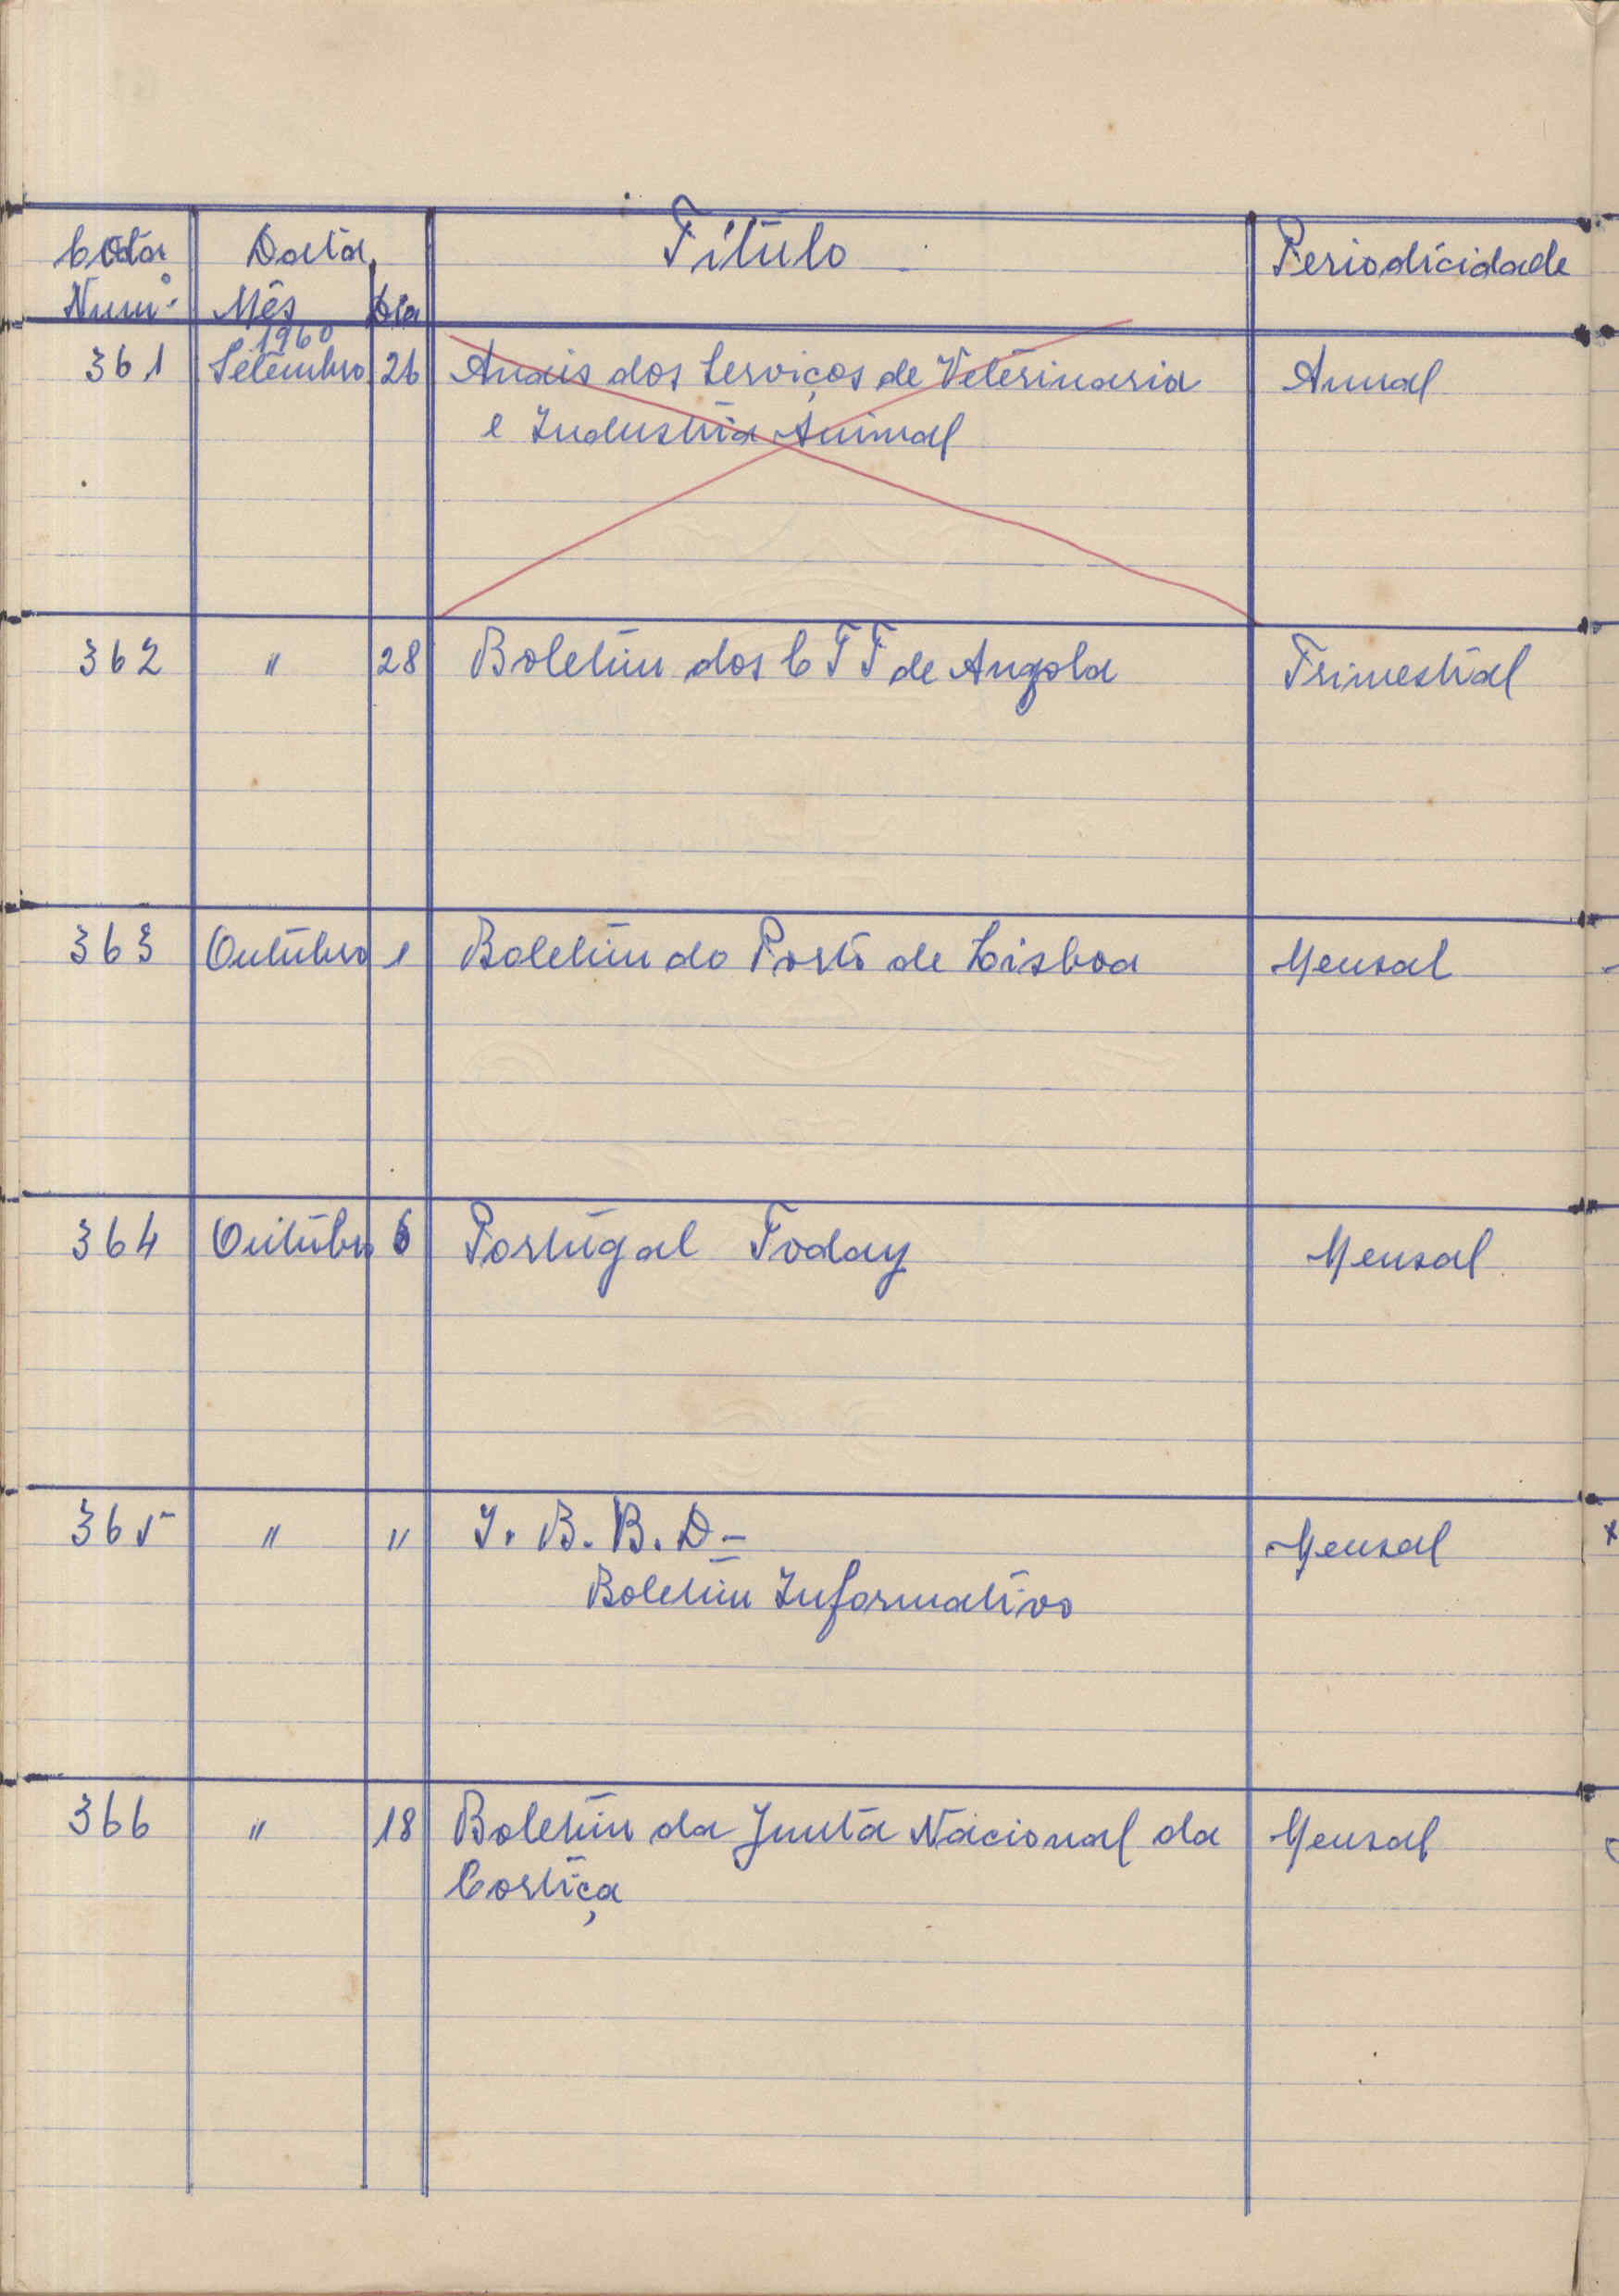 Cota Data Título Periodicidade
Num.º Mês Dia
1960
361 Setembro 26 Anais dos Serviços de Veterinaria Anual
e Industria Animal
362 " 28 Boletim dos C T T de Angola Trimestral
363 Outubro 1 Boletim do Porto de Lisboa Mensal
364 Outubro 6 Portugal Today Mensal
365 " " I. B. B. D –
Mensal
Boletim Informativo
366 " 18 Boletim da Junta Nacional da Mensal
Cortiça